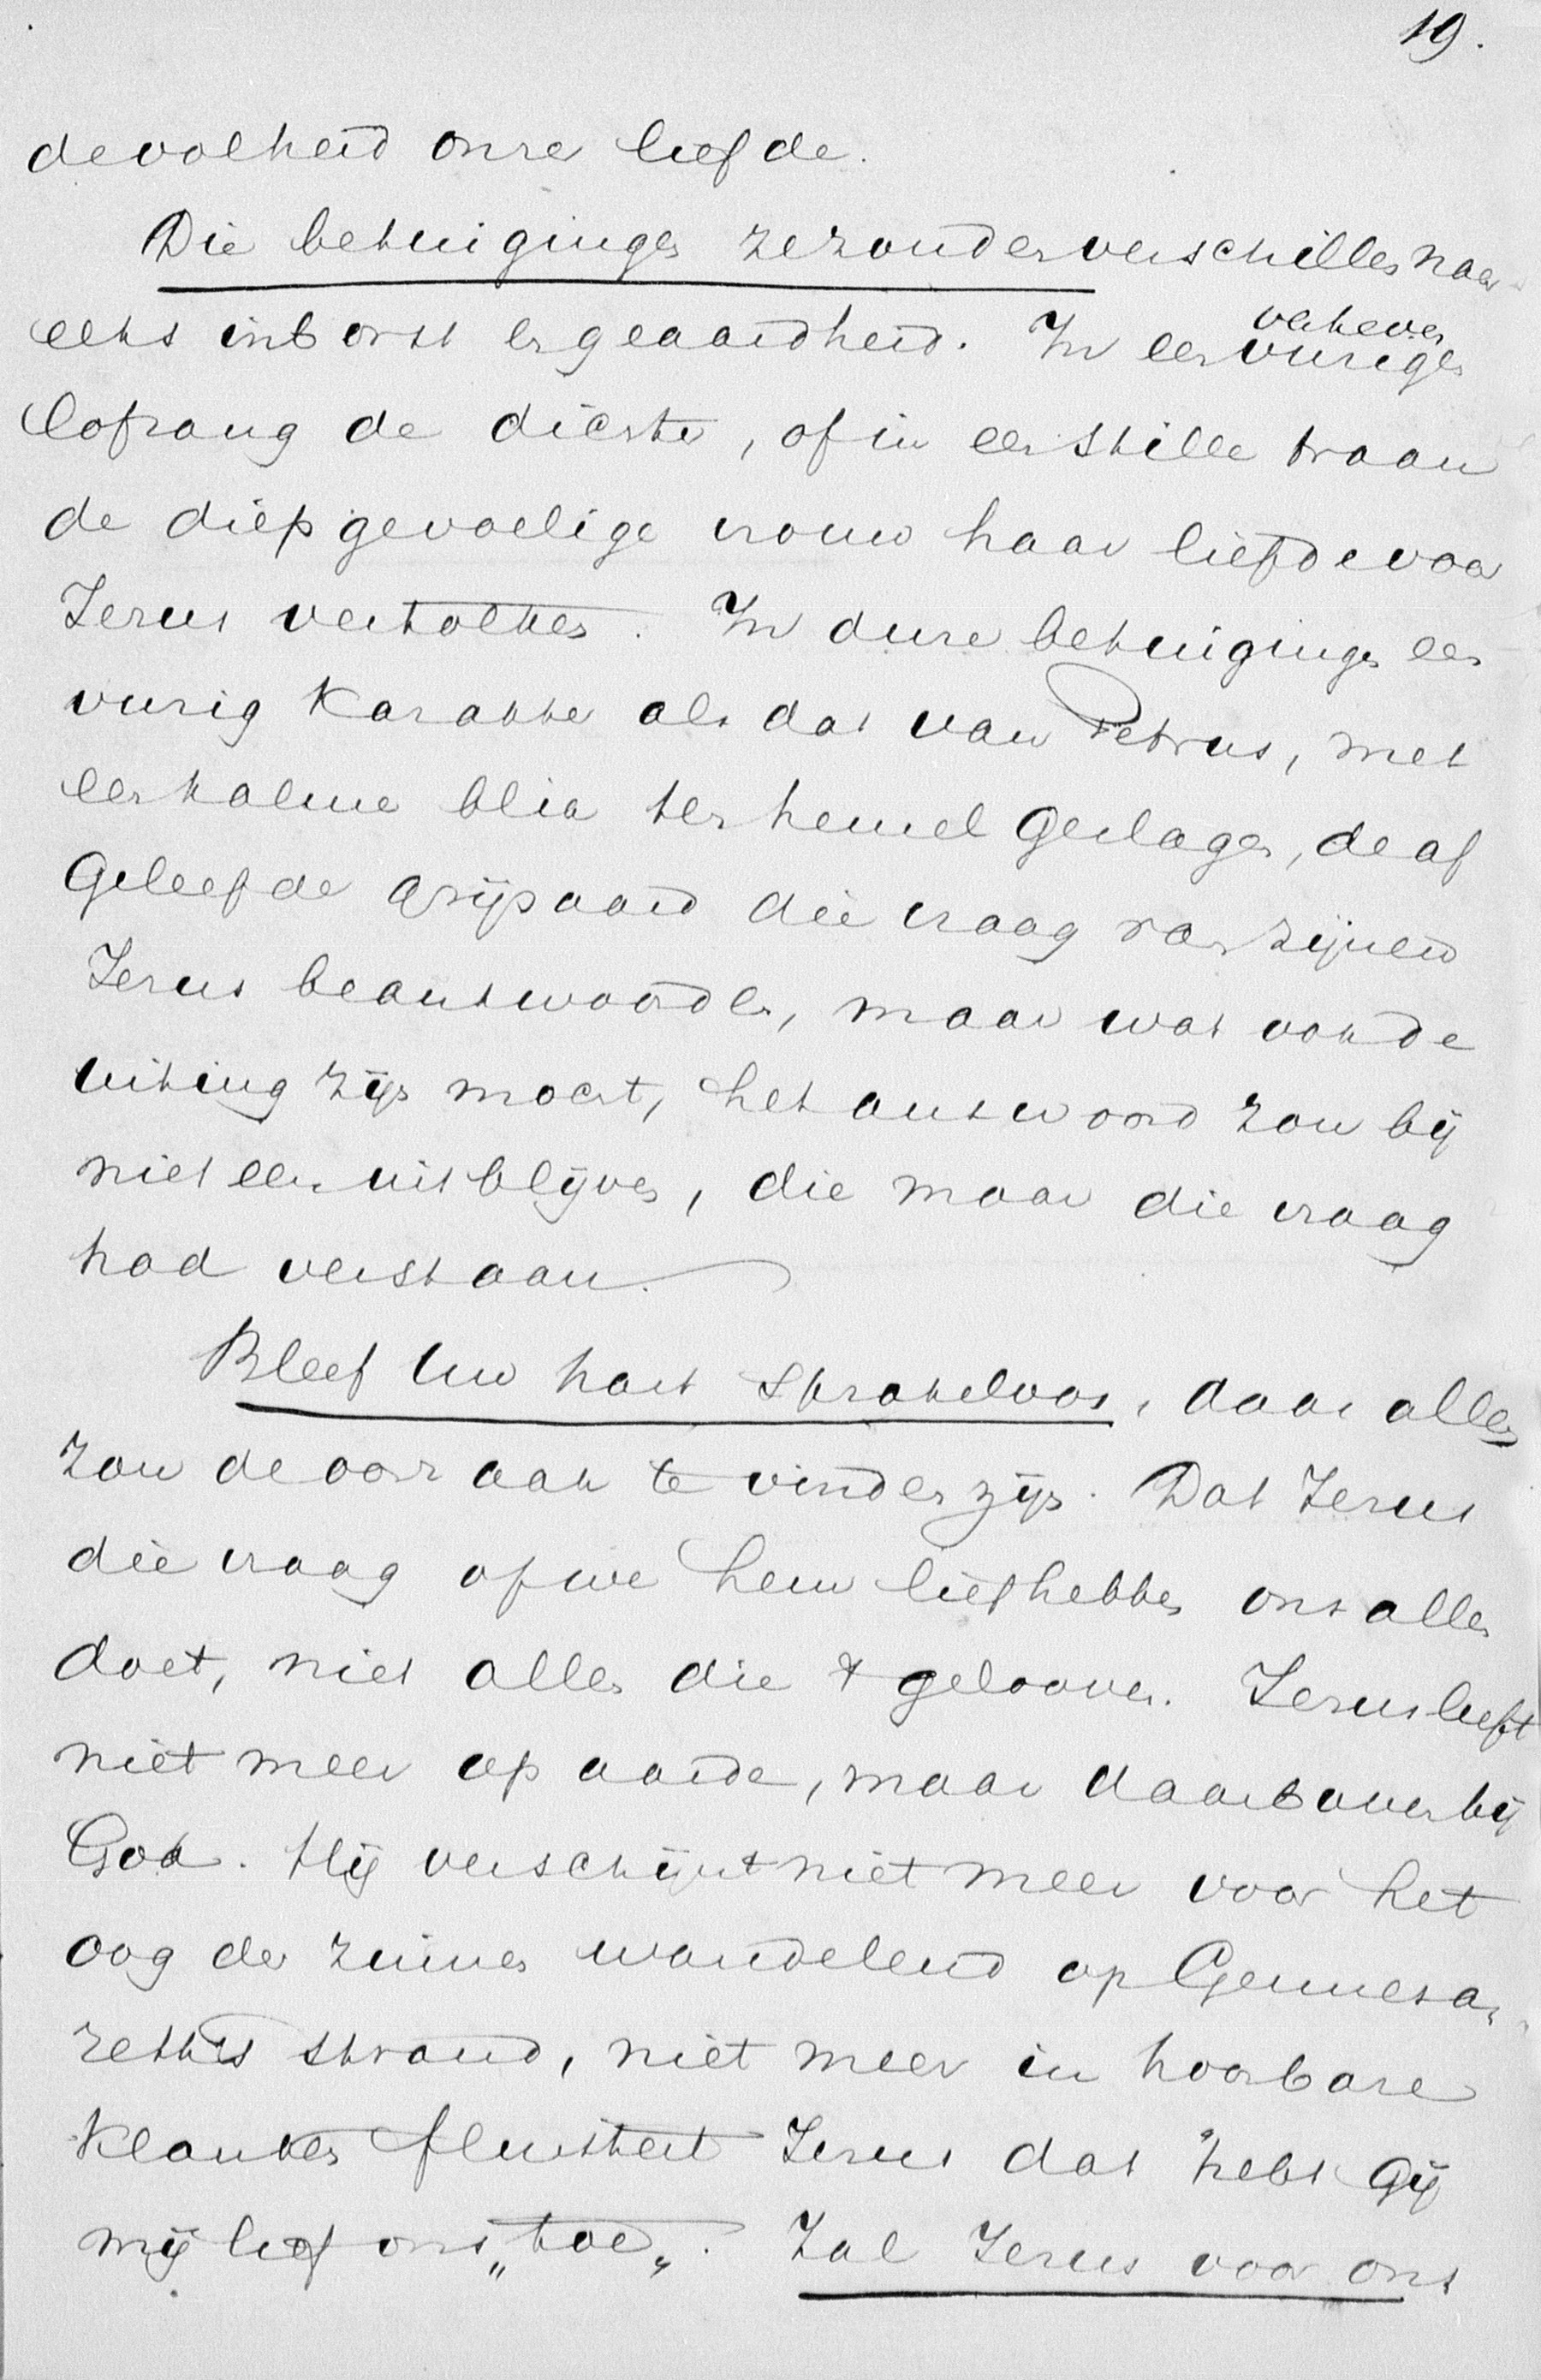 19.
de volheid onzer liefde.
Die betuigingen ze zouden verschillen naar
elks inborst en geaardheid. In een verheven
vurigen
lofzang de dichter, of in een stille traan
de diep gevoelige vrouw haar liefde voor
Jezus vertolken. In dure betuigingen een
vurig karakter als dat van Petrus, met
een kalme blik ten hemel geslagen, de af
geleefde grijsaard die vraag van zijnen
Jezus beantwoorden, maar wat ook de
uiting zijn mocht, het antwoord zou bij
niet een uitblijven, die maar die vraag
had verstaan.
Bleef Uw hart sprakeloos, daar alleen
zou de oorzaak te vinden zijn. Dat Jezus
die vraag of we hem liefhebben ons allen
doet, niet allen die 't gelooven. Jezus leeft
niet meer op aarde, maar daarboven bij
God. Hij verschijnt niet meer voor het
oog der zinnen wandelend op Gennesa-
reths strand, niet meer in hoorbare
klanken fluistert Jezus dat "hebt Gij
mij lief ons „toe„. Zal Jezus voor ons